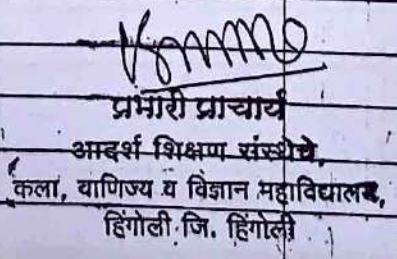 प्रभारी प्राचार्य
आदर्श शिक्षण संस्थेचे,
कला, वाणिज्य व विज्ञान महाविद्यालय,
हिंगोली जि. हिंगोली